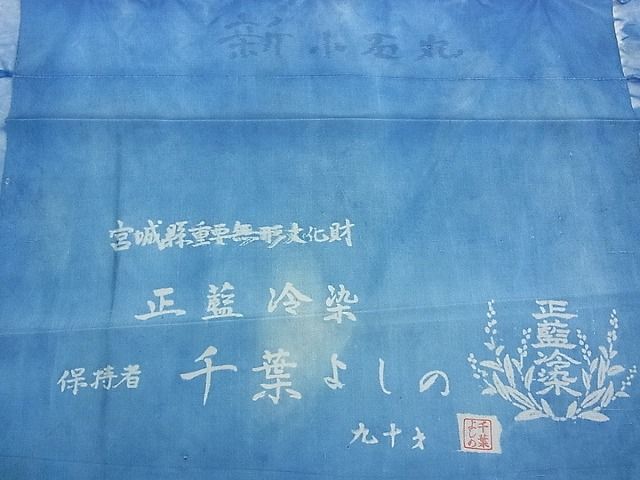 新小石丸
宮城縣重要無形文化財
正藍冷染
保持者 千葉よしの
九十才
千葉よしの
正藍染